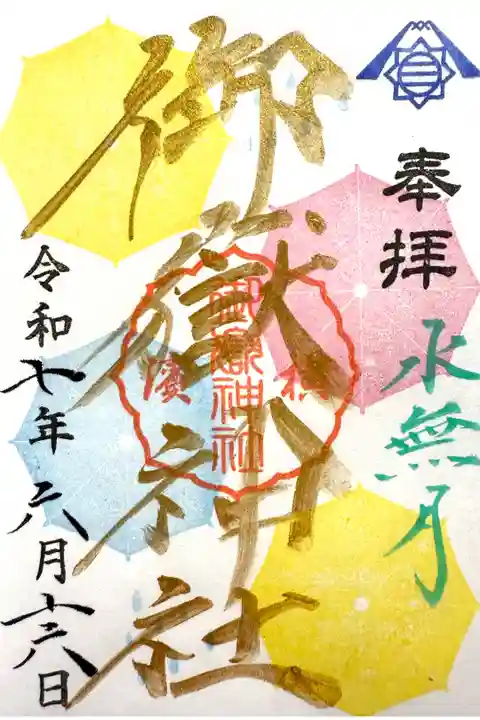 奉拝
水無月
御嶽神社
御嶽神社
横濱
令和七年六月十六日